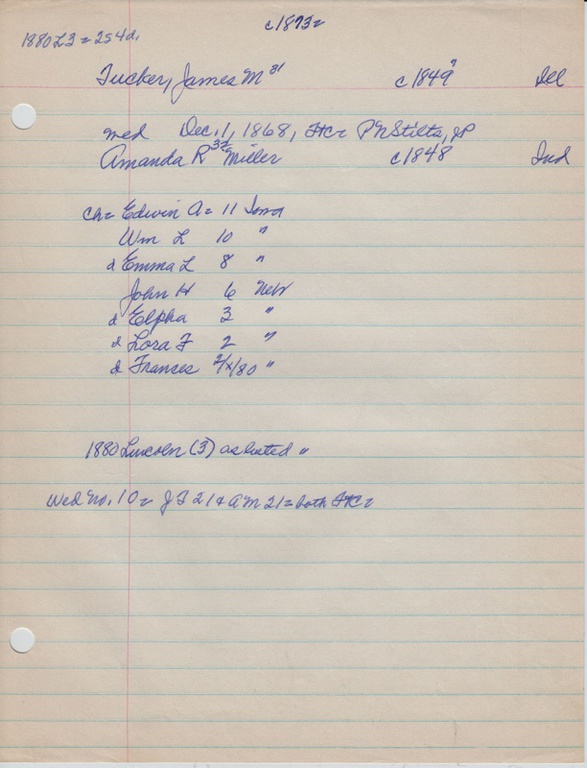 c1873=
1880 L3 = 254d.
Tucker, James M 31 c1849 Ill
wed Dec. 1, 1868, HC= P N Stilts, JP
Amanda R 32 Miller c1848 Ind
Ch= Edwin A = 11 Iowa
Wm L 10 "
d Emma L 8 "
John H 6 Nebr
d Elpha 3 "
d Lora F 2 "
d Frances 2/x/80 "
1880 Lincoln (3) as listed "
Wed no. 10= J T 21 & A M 21= both HC=